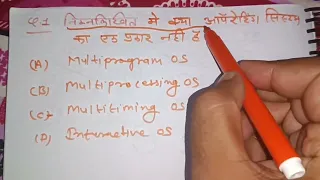 Q.1 निम्नलिखित में क्या ऑपरेटिंग सिस्टम
का एक प्रकार नहीं है
(A) Multiprogram OS
(B) Multiprocessing OS
(C) Multitiming OS
(D) Interactive OS